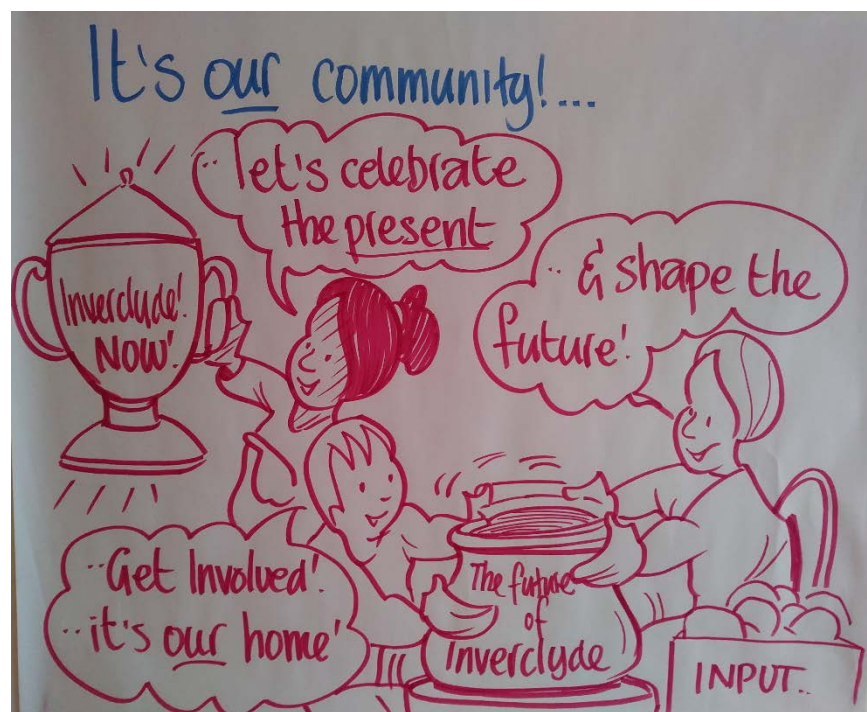 It's our community!...
..let's celebrate
the present
Inverclyde!
NOW!
.. & shape the
future!
..Get Involved!
..it's our home'
The future
of
Inverclyde
INPUT..